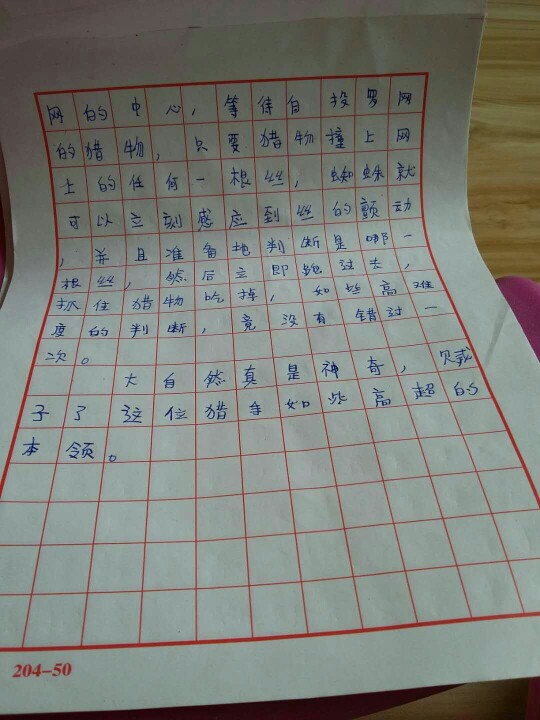 网的中心，等待自投罗网
的猎物，只要猎物撞上网
上的任何一根丝，蜘蛛就
可以立刻感应到丝的颤动
，并且准备地判断是哪一
根丝，然后立即跑过去，
抓住猎物吃掉，如些高难
度的判断，竟没有错过一
次。
大自然真是神奇，赋
子了这位猎手如此高超的
本领。
204-50